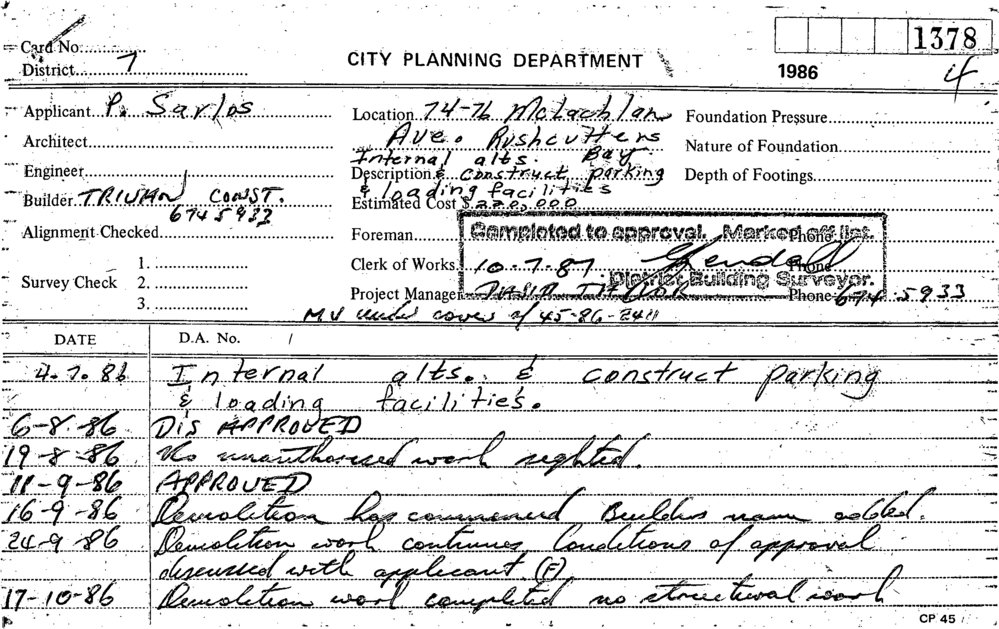 Card No.
1378
District 7
CITY PLANNING DEPARTMENT
1986
4
Applicant P. Sarlos
Location 74-76 McLachlan
Ave. Rushcutters
Bay
Foundation Pressure
Architect
Nature of Foundation
Engineer
Internal alts.
Description & construct parking
& loading facilities
Depth of Footings
Builder TRIVAN CONST.
6745933
Estimated Cost $220,000
Alignment Checked
Foreman
Phone
Completed to approval. Marked off list.
Survey Check
1.
2.
3.
Clerk of Works
Phone
10-7-87 Kendall
District Building Surveyor.
Project Manager DAVID
Phone 674 5933
MV under cover of 45-86-2411
DATE D.A. No.
4.7.86 Internal alts. & construct parking
& loading facilities.
6-8-86 DISAPPROVED
19-8-86 No unauthorised work sighted.
11-9-86 APPROVED
16-9-86 Demolition has commenced Builders name added.
24-9-86 Demolition work continues Conditions of approval
discussed with applicant (F)
17-10-86 Demolition work completed no structural work
CP 45